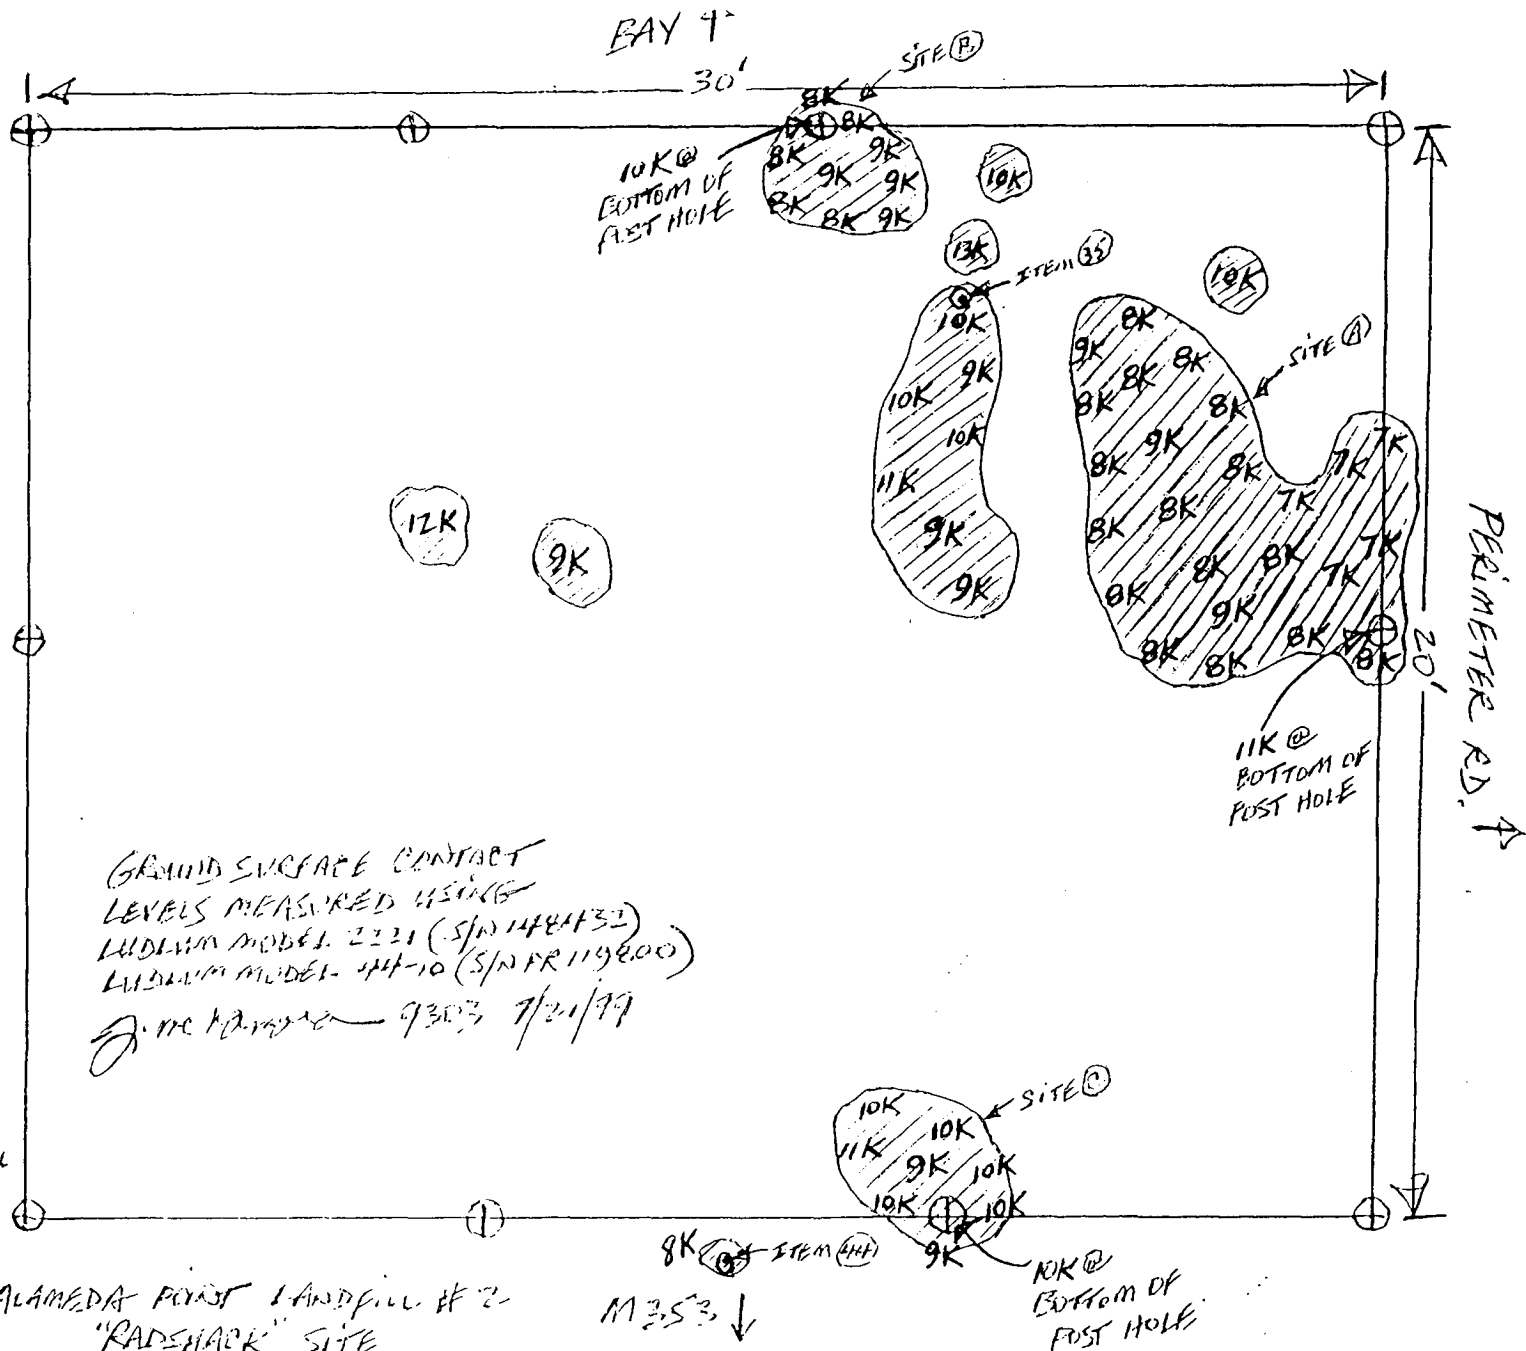 BAY
30'
SITE B
8K
8K
10K @
BOTTOM OF
POST HOLE
8K
9K
9K
9K
8K
8K
9K
10K
13K
ITEM 35
10K
10K
9K
10K
10K
11K
9K
9K
12K
9K
SITE A
8K
9K
8K
8K
8K
8K
9K
8K
8K
7K
7K
7K
8K
8K
8K
8K
7K
7K
8K
9K
8K
8K
8K
8K
11K @
BOTTOM OF
POST HOLE
20'
PERIMETER RD.
GROUND SURFACE CONTACT
LEVELS MEASURED USING
LUDLUM MODEL 2221 (S/N 148432)
LUDLUM MODEL 44-10 (S/N PR119800)
9303 7/21/99
SITE C
10K
10K
11K
9K
10K
10K
10K
9K
10K @
BOTTOM OF
POST HOLE
8K
ITEM 44
M353
ALAMEDA POINT LANDFILL # 2
"RADSHACK" SITE